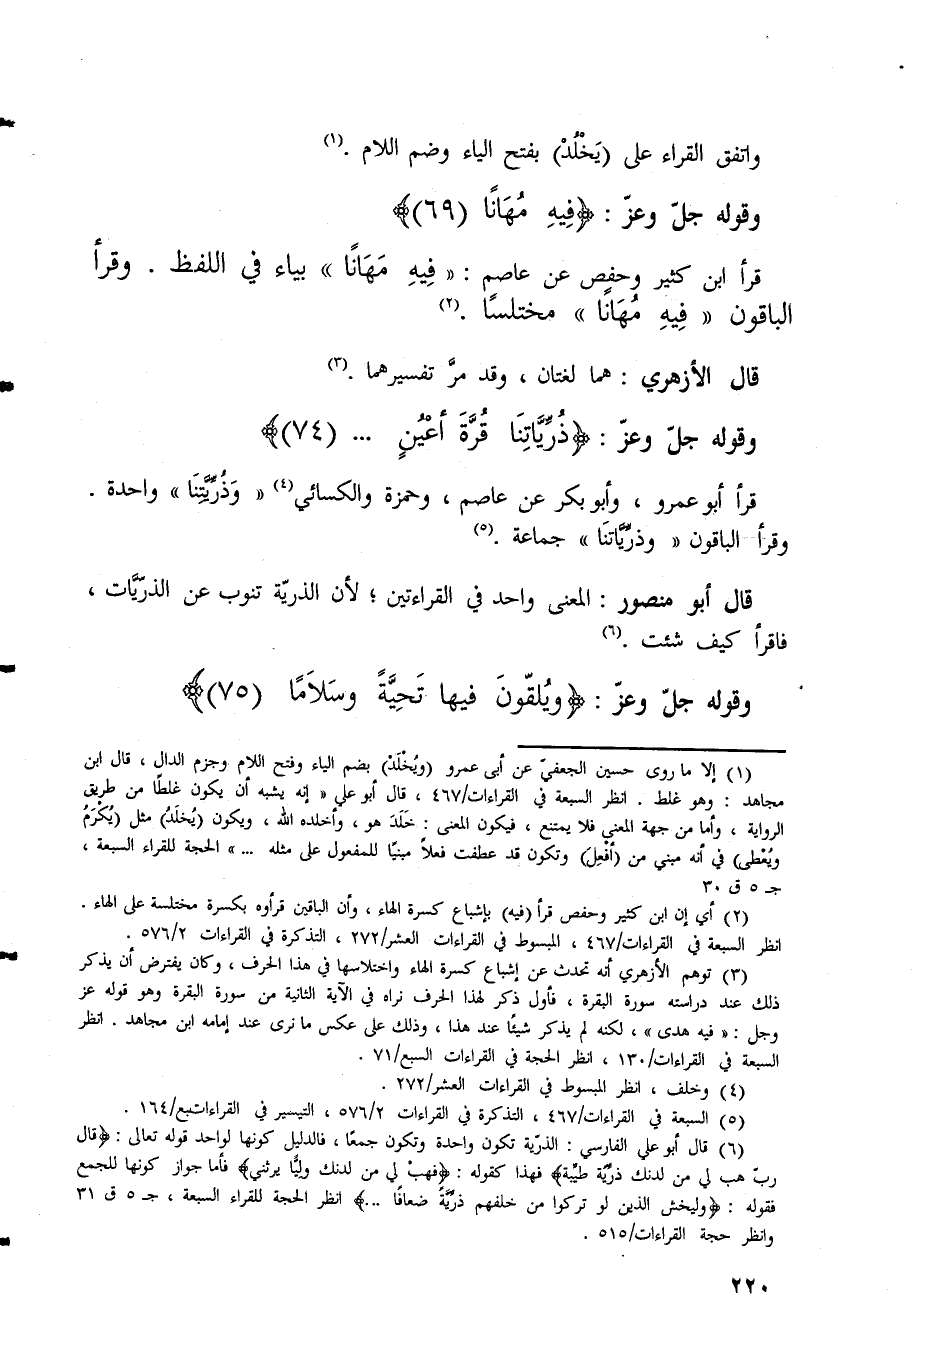 واتفق القراء على (يَخْلُدْ) بفتح الياء وضم اللام .(١)
وقوله جلّ وعزّ : ﴿فِيهِ مُهَانًا (٦٩)﴾
قرأ ابن كثير وحفص عن عاصم : « فِيهِ مَهَانًا » بياء في اللفظ . وقرأ
الباقون « فِيهِ مُهَانًا » مختلسًا .(٢)
قال الأزهري : هما لغتان ، وقد مرَّ تفسيرهما .(٣)
وقوله جلّ وعزّ : ﴿ذُرِّيَّاتِنَا قُرَّةَ أَعْيُنٍ ... (٧٤)﴾
قرأ أبو عمرو ، وأبو بكر عن عاصم ، وحمزة والكسائي(٤) « وَذُرِّيَّتِنَا » واحدة .
وقرأ الباقون « وذرِّيَّاتنَا » جماعة .(٥)
قال أبو منصور : المعنى واحد في القراءتين ؛ لأن الذريّة تنوب عن الذرّيَّات ،
فاقرأ كيف شئت .(٦)
وقوله جلّ وعزّ : ﴿ويُلقّونَ فيها تَحِيَّةً وسَلاَمًا (٧٥)﴾
(١) إلا ما روى حسين الجعفيّ عن أبى عمرو (ويُخْلَدْ) بضم الياء وفتح اللام وجزم الدال ، قال ابن
مجاهد : وهو غلط . انظر السبعة في القراءات/٤٦٧ ، قال أبو علي « إنه يشبه أن يكون غلطًا من طريق
الرواية ، وأما من جهة المعنى فلا يمتنع ، فيكون المعنى : خَلَدَ هو ، وأخلده الله ، ويكون (يُخلَدُ) مثل (يُكْرَمُ
ويُعْطى) في أنه مبني من (أفْعِلَ) وتكون قد عطفت فعلاً مبنيًا للمفعول على مثله ... » الحجة للقراء السبعة ،
جـ ٥ ق ٣٠
(٢) أي إن ابن كثير وحفص قرأ (فيه) بإشباع كسرة الهاء ، وأن الباقين قرأوه بكسرة مختلسة على الهاء .
انظر السبعة في القراءات/٤٦٧ ، المبسوط في القراءات العشر/٢٧٢ ، التذكرة في القراءات ٥٧٦/٢ .
(٣) توهم الأزهري أنه تحدث عن إشباع كسرة الهاء واختلاسها في هذا الحرف ، وكان يفترض أن يذكر
ذلك عند دراسته سورة البقرة ، فأول ذكر لهذا الحرف نراه في الآية الثانية من سورة البقرة وهو قوله عز
وجل : « فيه هدى » ، لكنه لم يذكر شيئًا عند هذا ، وذلك على عكس ما نرى عند إمامه ابن مجاهد . انظر
السبعة في القراءات/١٣٠ ، انظر الحجة في القراءات السبع/٧١ .
(٤) وخلف ، انظر المبسوط في القراءات العشر/٢٧٢ .
(٥) السبعة في القراءات/٤٦٧ ، التذكرة في القراءات ٥٧٦/٢ ، التيسير في القراءات السبع/١٦٤ .
(٦) قال أبو علي الفارسي : الذرّية تكون واحدة وتكون جمعًا ، فالدليل كونها لواحد قوله تعالى : ﴿قال
ربّ هب لي من لدنك ذرّيّة طيِّبة﴾ فهذا كقوله : ﴿فهبْ لي من لدنك وليًّا يرثني﴾ فأما جواز كونها للجمع
فقوله : ﴿وليخش الذين لو تركوا من خلفهم ذرّيَّةً ضعافًا ...﴾ انظر الحجة للقراء السبعة ، جـ ٥ ق ٣١
وانظر حجة القراءات/٥١٥ .
٢٢٠